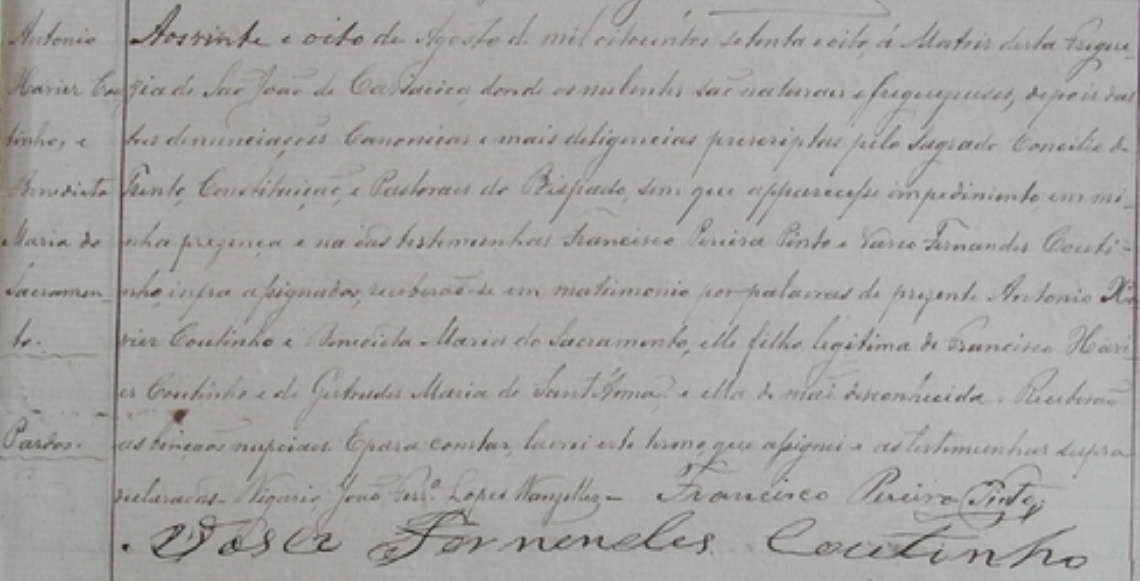 Antonio
Xavier Cou
tinho, e
Benedicta
Maria do
Sacramen
to.
Pardos.
Aos vinte e oito de Agosto de mil oitocentos setenta e oito, á Matriz desta Fregue-
zia de São João de Cariacica, donde os nubentes são naturaes e freguezes, depois das
tres denunciações Canonicas e mais deligencias prescriptas pelo Sagrado Concilio de
Trento, Constituição, e Pastoraes do Bispado, sem que apparecesse impedimento, em mi-
nha prezença e na das testemunhas Francisco Pereira Pinto e Vasco Fernandes Couti-
nho, infra assignados, receberão-se em matrimonio por palavras de prezente Antonio Xa
vier Coutinho e Benedicta Maria do Sacramento, elle filho legitimo de Francisco Xavi-
er Coutinho e de Gertrudes Maria de Sant'Anna, e ella de mãi desconhecida. Receberão
as bençãos nupciaes. E para constar, lavrei este termo, que assignei e as testemunhas supra
declaradas. Vigario João Ferrª. Lopes Wanzeller-
Francisco Pereira Pinto
Vasco Fernendes Coutinho